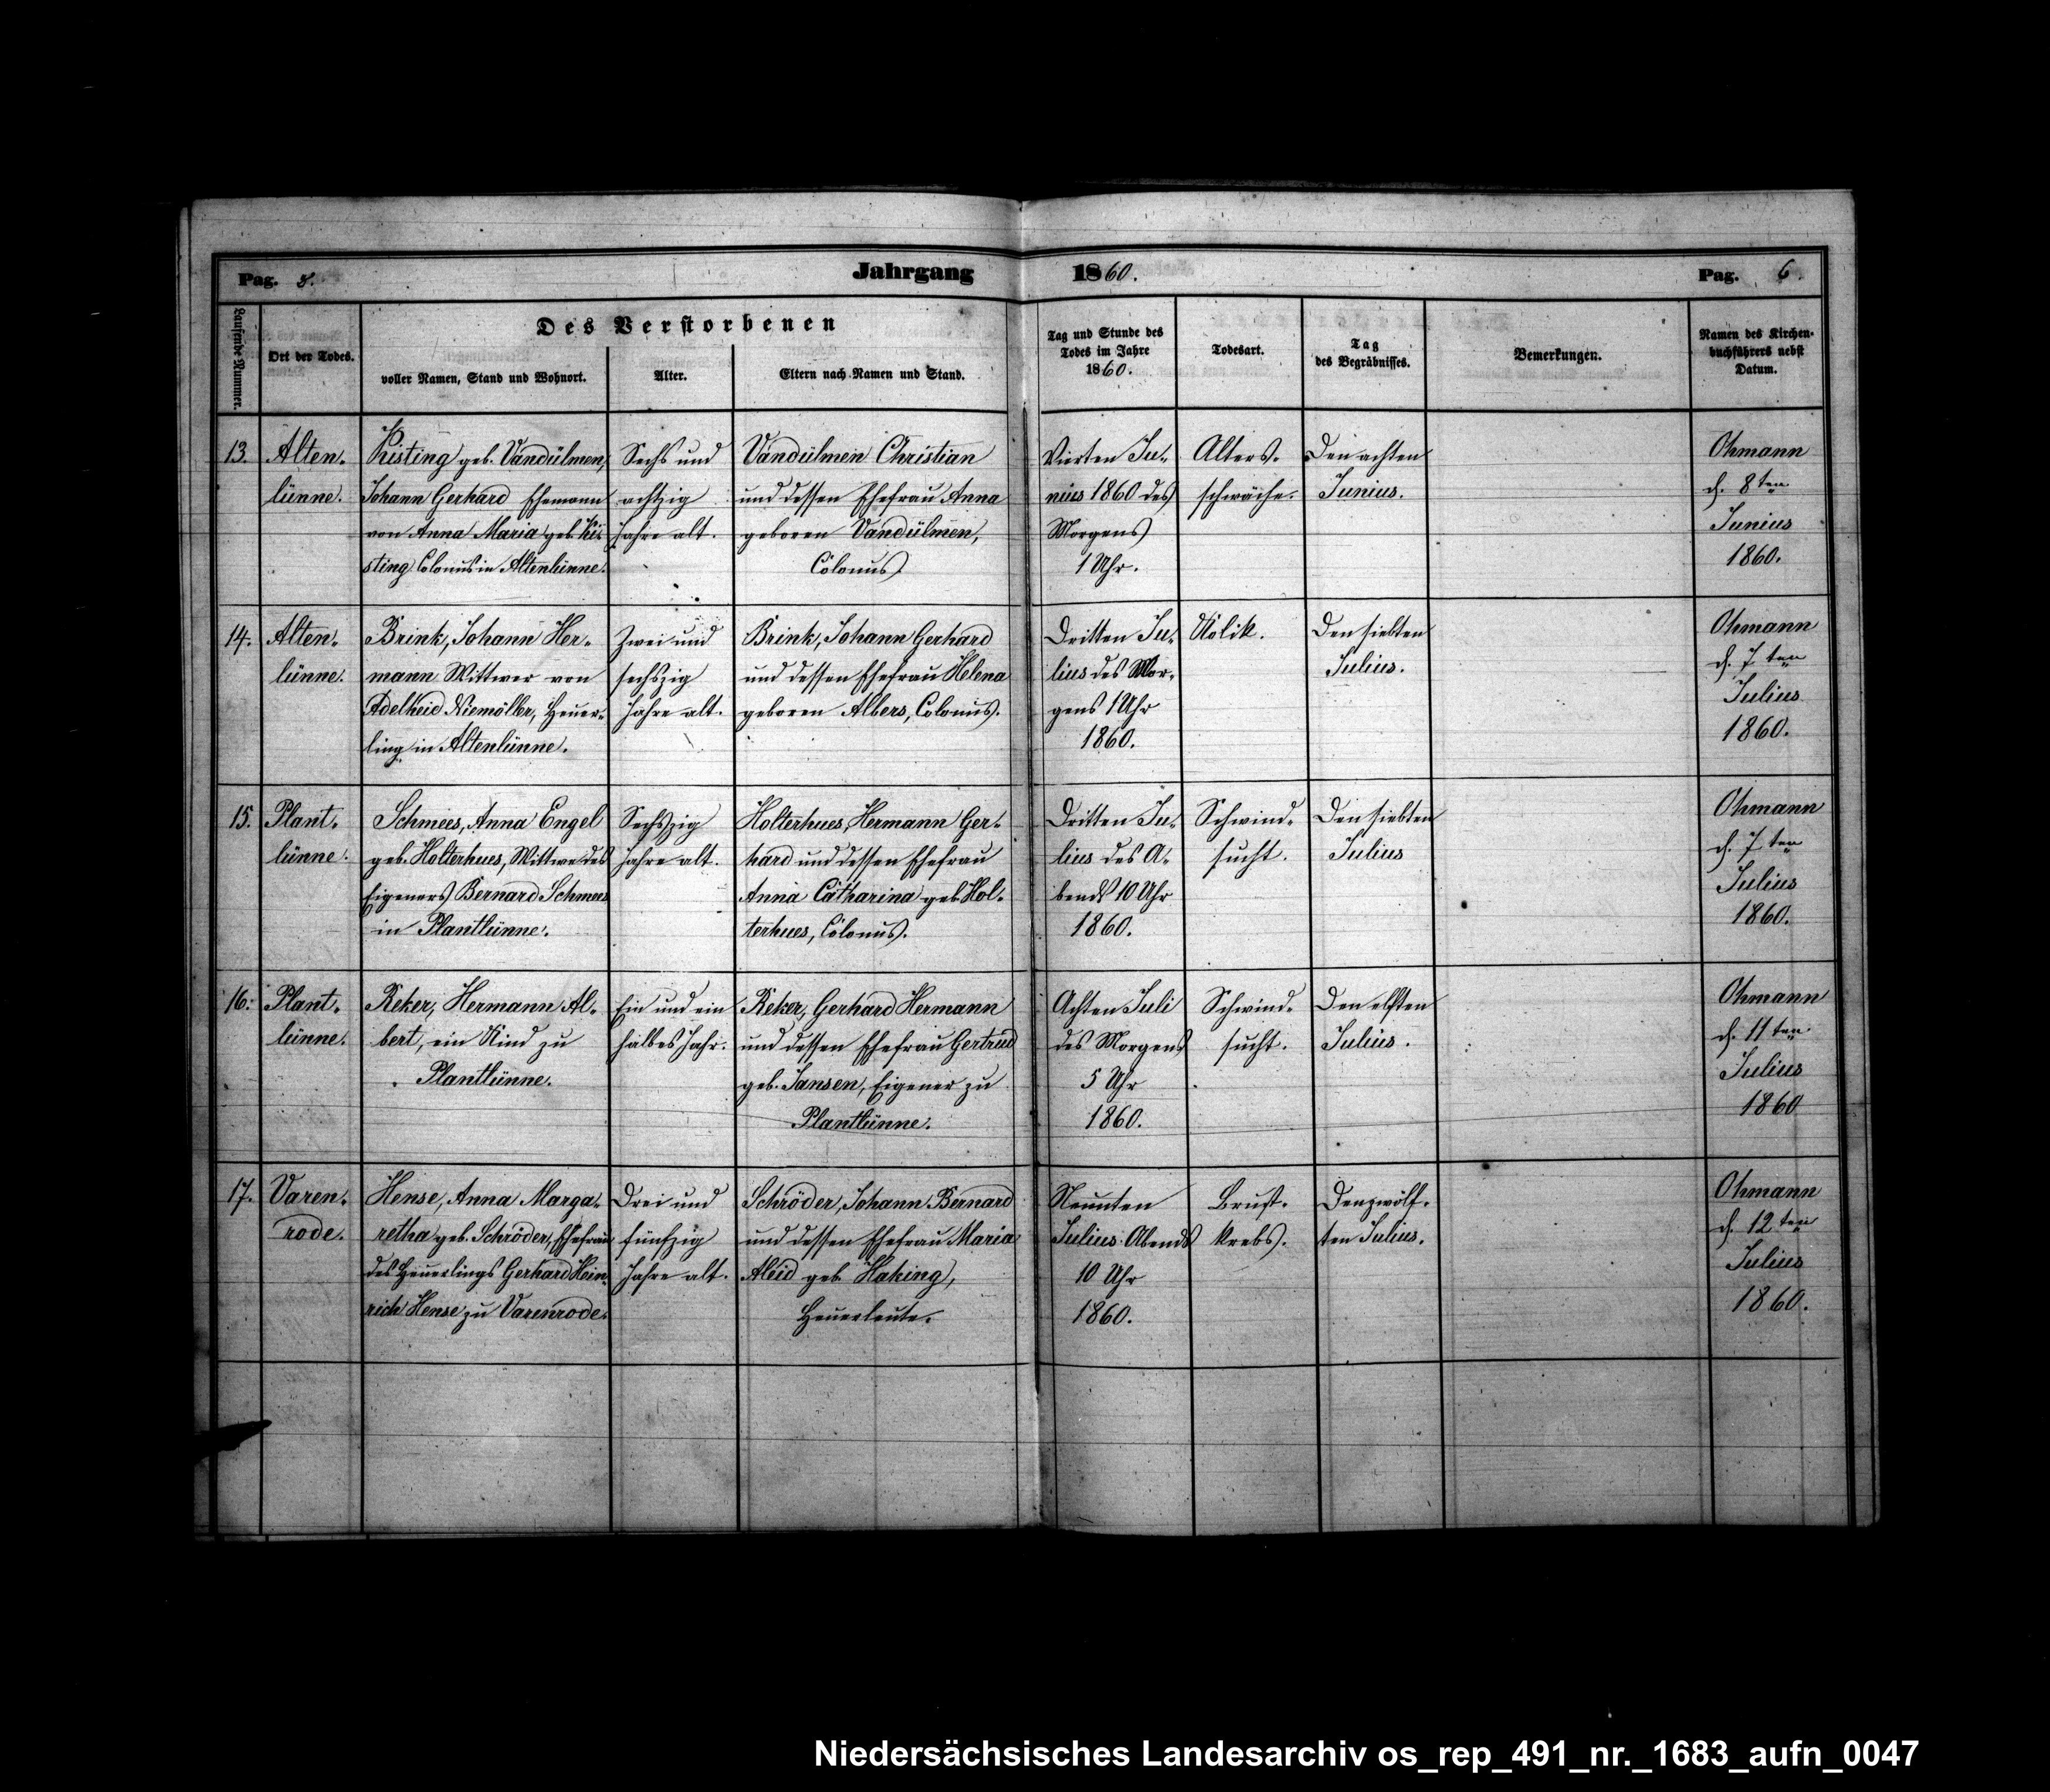 Pag. 5.
Jahrgang 1860.
Pag. 6.
Laufende Nummer.
Ort der Todes.
Des Verstorbenen
voller Namen, Stand und Wohnort.
Alter.
Eltern nach Namen und Stand.
Tag und Stunde des
Todes im Jahre
1860.
Todesart.
Tag
des Begräbnisses.
Bemerkungen.
Namen des Kirchen-
buchführers nebst
Datum.
13.
Alten-
lünne.
Kisting geb. Vandülmen,
Johann Gerhard Ehemann
von Anna Maria geb. Ki-
sting Colonus in Altenlünne.
Sechs und
achtzig
Jahre alt.
Vandülmen Christian
und dessen Ehefrau Anna
geboren Vandülmen,
Colonus
Vierten Ju-
nius 1860 des
Morgens
1 Uhr.
Alters-
schwäche.
Den achten
Junius.
Ohmann
d. 8ten
Junius
1860.
14.
Alten-
lünne.
Brink, Johann Her-
mann Wittwer von
Adelheid Niemöller, Heuer-
ling in Altenlünne.
Zwei und
sechszig
Jahre alt.
Brink, Johann Gerhard
und dessen Ehefrau Helena
geboren Albers, Colonus.
Dritten Ju-
lius des Mor-
gens 1 Uhr
1860.
Kolik.
Den siebten
Julius.
Ohmann
d. 7ten
Julius
1860.
15.
Plant-
lünne.
Schmees, Anna Engel
geb. Holterhues, Wittwe des
Eigeners Bernard Schmees
in Plantlünne.
Sechszig
Jahre alt.
Holterhues, Hermann Ger-
hard und dessen Ehefrau
Anna Catharina geb. Hol-
terhues, Colonus.
Dritten Ju-
lius des A-
bends 10 Uhr
1860.
Schwind-
sucht.
Den siebten
Julius
Ohmann
d. 7ten
Julius
1860.
16.
Plant-
lünne.
Reker, Hermann Al-
bert, ein Kind zu
Plantlünne.
Ein und ein
halbes Jahr.
Reker, Gerhard Hermann
und dessen Ehefrau Gertrud
geb. Jansen, Eigener zu
Plantlünne.
Achten Juli
des Morgens
5 Uhr
1860.
Schwind-
sucht.
Den elften
Julius.
Ohmann
d. 11ten
Julius
1860
17.
Varen-
rode.
Hense, Anna Marga-
retha geb. Schröder, Ehefrau
des Heuerlings Gerhard Hein-
rich Hense zu Varenrode.
Drei und
fünfzig
Jahre alt.
Schröder, Johann Bernard
und dessen Ehefrau Maria
Aleid geb. Haking,
Heuerleute.
Neunten
Julius Abends
10 Uhr
1860.
Brust-
krebs.
Den zwölf-
ten Julius.
Ohmann
d. 12ten
Julius
1860.
Niedersächsisches Landesarchiv os_rep_491_nr._1683_aufn_0047